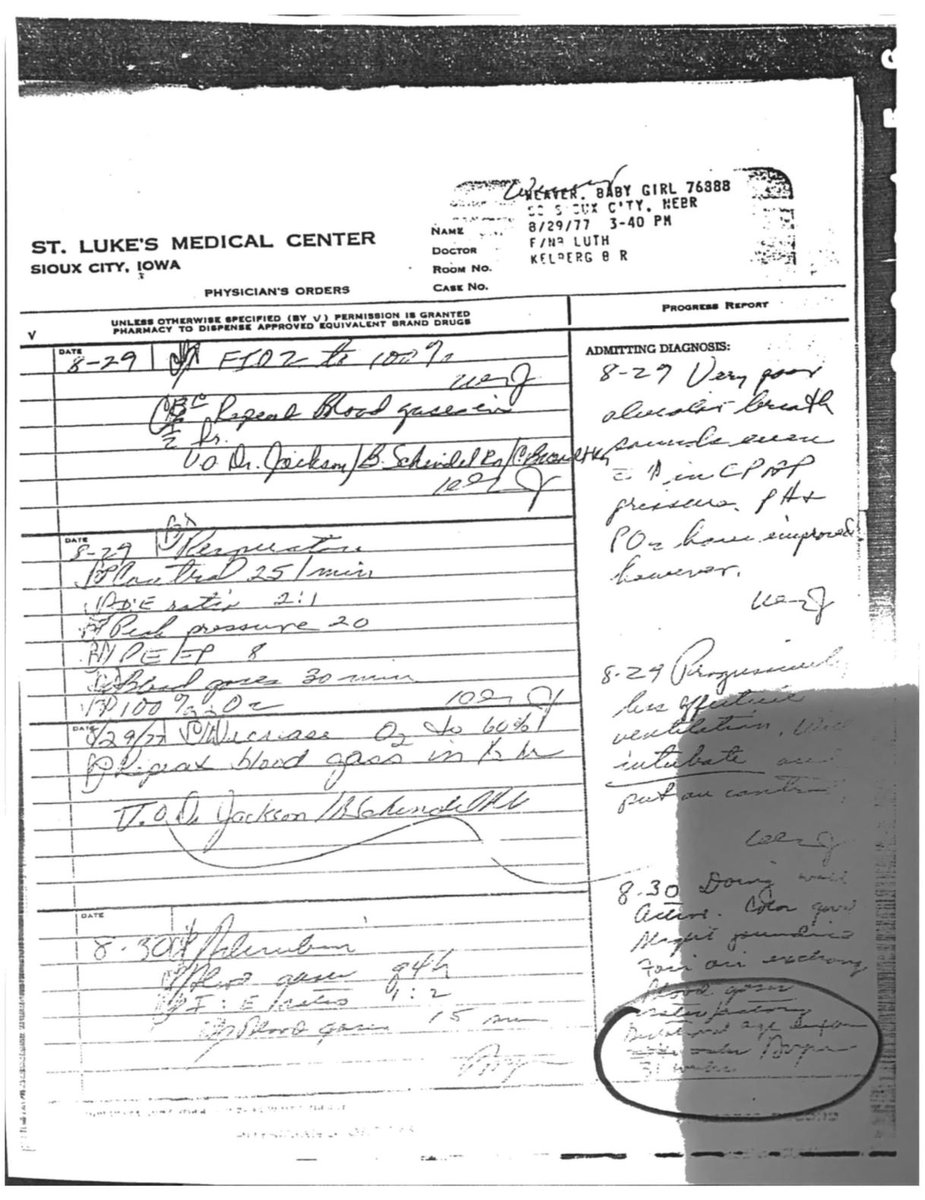 WEAVER, BABY GIRL 76888
SO SIOUX CITY, NEBR
NAME 8/29/77 3-40 PM
DOCTOR F/NB LUTH
ROOM NO. KELBERG B R
CASE NO.
ST. LUKE'S MEDICAL CENTER
SIOUX CITY, IOWA
PHYSICIAN'S ORDERS
UNLESS OTHERWISE SPECIFIED (BY √) PERMISSION IS GRANTED
PHARMACY TO DISPENSE APPROVED EQUIVALENT BRAND DRUGS
V
DATE
8-29 ↑ FIO2 to 100%
Repeat Blood gases in
1/2 hr.
V.O Dr. Jackson/B. Schindel Rn
DATE
8-29 Respirator
Control 25/min
I:E ratio 2:1
Peak pressure 20
PEEP 8
Blood gases 30 min
100% O2
DATE
8/29/77 Decrease O2 to 60%
Repeat blood gases in 1/2 hr
V.O. Dr Jackson/B Schindel RN
DATE
8-30 Bilirubin
Blood gases q4h
I:E ratio 1:2
Blood gases 15 min
PROGRESS REPORT
ADMITTING DIAGNOSIS:
8-29 Very poor
alveolar breath
sounds even
c ↑ in CPAP
pressure. PH +
PO2 have improved
however.
8-29 Progressively
less effective
ventilation. Will
intubate and
put on control
8-30 Doing well
Active. Color good
Slight jaundice
Fair air exchange
Blood gases
satisfactory
31 weeks